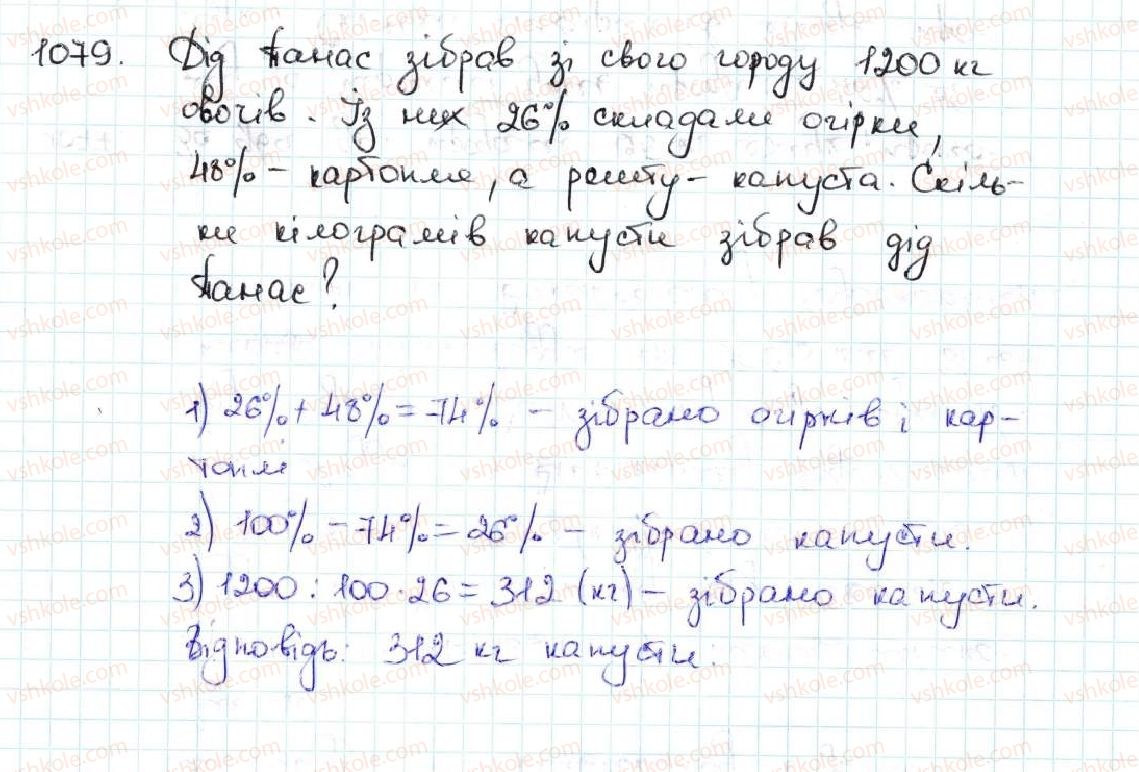 1079. Дід Панас зібрав зі свого городу 1200 кг
овочів. Із них 26% складали огірки,
48% - картопля, а решту - капуста. Скіль-
ки кілограмів капусти зібрав дід
Панас?
1) 26% + 48% = 74% - зібрано огірків і кар-
топлі
2) 100% - 74% = 26% - зібрано капусти.
3) 1200 : 100 · 26 = 312 (кг) - зібрано капусти.
Відповідь: 312 кг капусти.